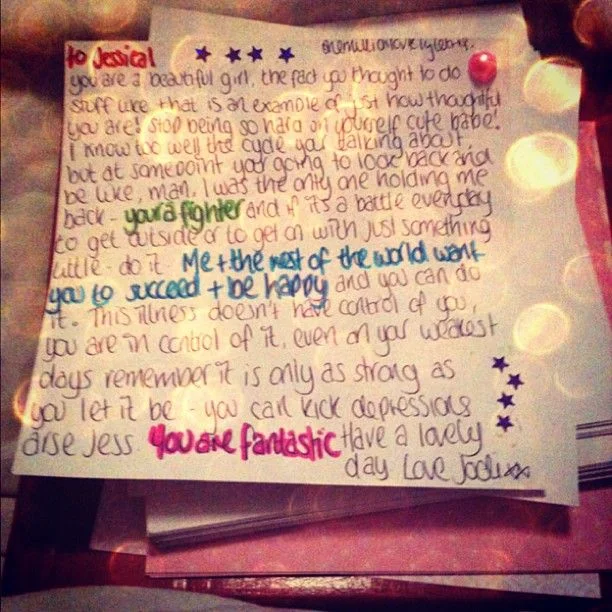 to Jessica! @onemillionlovelyletters.
you are a beautiful girl, the fact you thought to do
stuff like that is an example of just how thoughtful
you are! stop being so hard on yourself cute babe!
I know too well the cycle your talking about,
but at somepoint your going to look back and
be like, man, I was the only one holding me
back - your a fighter and if its a battle everyday
to get outside or to get on with just something
little - do it. Me + the rest of the world want
you to succeed + be happy and you can do
it. This illness doesn't have control of you,
you are in control of it, even on your weakest
days remember it is only as strong as
you let it be - you can kick depressions
arse Jess You are fantastic Have a lovely
day Love Jodi xx